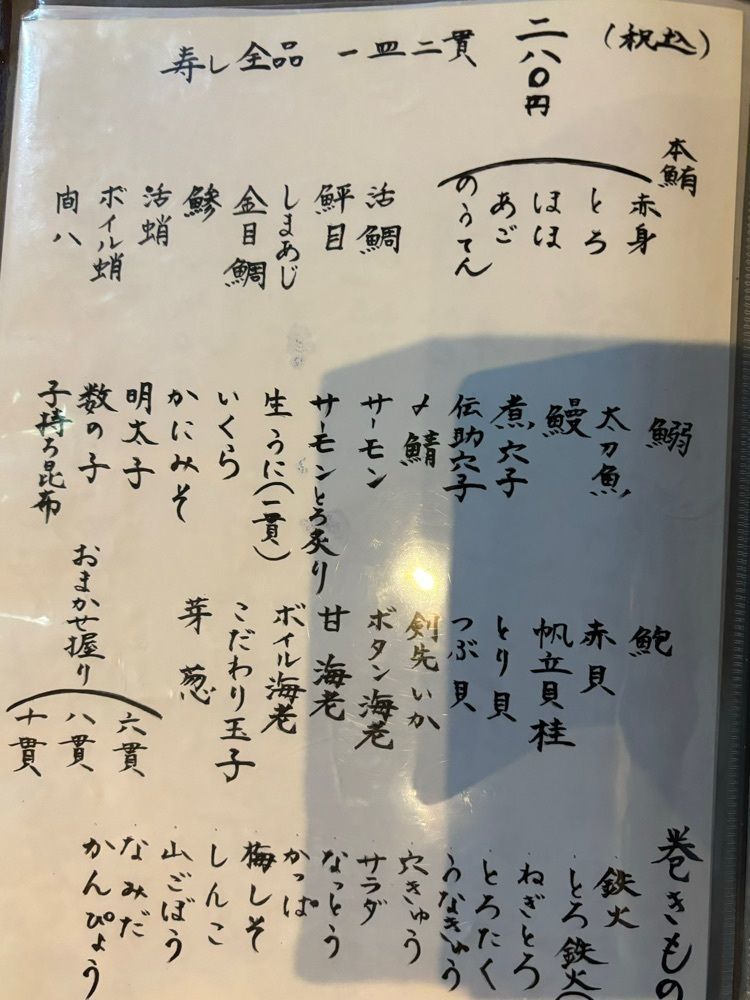 寿し全品 一皿二貫 二八〇円 (税込)
本鮪
赤身
とろ
ほほ
あご
のうてん
活鯛
鮃目
しまあじ
金目鯛
鯵
活蛸
ボイル蛸
間八
鰯
太刀魚
鰻
煮穴子
伝助穴子
〆鯖
サーモン
サーモンとろ炙り
生うに(一貫)
いくら
かにみそ
明太子
数の子
子持ち昆布
鮑
赤貝
帆立貝桂
とり貝
つぶ貝
剣先いか
ボタン海老
甘海老
ボイル海老
こだわり玉子
芽葱
おまかせ握り
六貫
八貫
十貫
巻きもの
鉄火
とろ鉄火(
ねぎとろ
とろたく
うなきゅう
穴きゅう
サラダ
なっとう
かっぱ
梅しそ
しんこ
山ごぼう
なみだ
かんぴょう